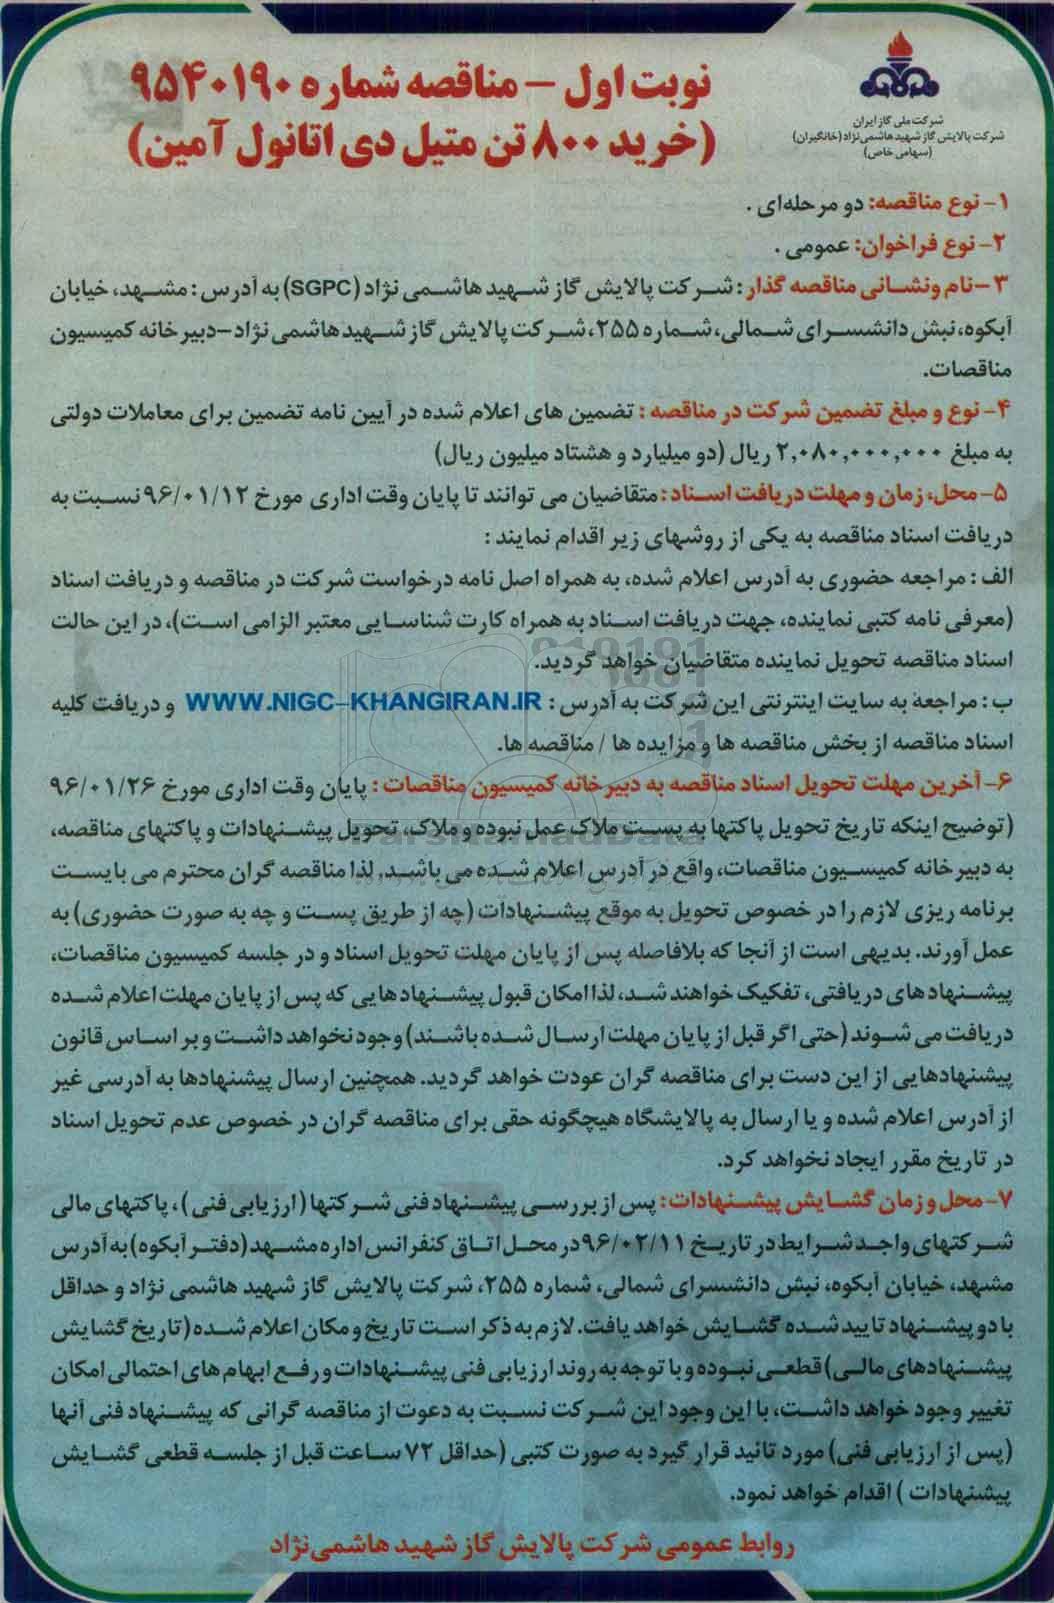 شرکت ملی گاز ایران
شرکت پالایش گاز شهید هاشمی‌نژاد (خانگیران)
(سهامی خاص)
نوبت اول – مناقصه شماره ۹۵۴۰۱۹۰
(خرید ۸۰۰ تن متیل دی اتانول آمین)
۱- نوع مناقصه: دو مرحله‌ای .
۲- نوع فراخوان: عمومی .
۳- نام ونشانی مناقصه گذار: شرکت پالایش گاز شهید هاشمی نژاد (SGPC) به آدرس: مشهد، خیابان
آبکوه، نبش دانشسرای شمالی، شماره ۲۵۵، شرکت پالایش گاز شهید هاشمی نژاد – دبیرخانه کمیسیون
مناقصات.
۴- نوع و مبلغ تضمین شرکت در مناقصه : تضمین های اعلام شده در آیین نامه تضمین برای معاملات دولتی
به مبلغ ۲,۰۸۰,۰۰۰,۰۰۰ ریال (دو میلیارد و هشتاد میلیون ریال)
۵- محل، زمان و مهلت دریافت اسناد: متقاضیان می توانند تا پایان وقت اداری مورخ ۹۶/۰۱/۱۲ نسبت به
دریافت اسناد مناقصه به یکی از روشهای زیر اقدام نمایند :
الف : مراجعه حضوری به آدرس اعلام شده، به همراه اصل نامه درخواست شرکت در مناقصه و دریافت اسناد
(معرفی نامه کتبی نماینده، جهت دریافت اسناد به همراه کارت شناسایی معتبر الزامی است)، در این حالت
اسناد مناقصه تحویل نماینده متقاضیان خواهد گردید.
ب : مراجعه به سایت اینترنتی این شرکت به آدرس : WWW.NIGC-KHANGIRAN.IR و دریافت کلیه
اسناد مناقصه از بخش مناقصه ها و مزایده ها / مناقصه ها.
۶- آخرین مهلت تحویل اسناد مناقصه به دبیرخانه کمیسیون مناقصات : پایان وقت اداری مورخ ۹۶/۰۱/۲۶
(توضیح اینکه تاریخ تحویل پاکتها به پست ملاک عمل نبوده و ملاک، تحویل پیشنهادات و پاکتهای مناقصه،
به دبیرخانه کمیسیون مناقصات، واقع در آدرس اعلام شده می باشد. لذا مناقصه گران محترم می بایست
برنامه ریزی لازم را در خصوص تحویل به موقع پیشنهادات (چه از طریق پست و چه به صورت حضوری) به
عمل آورند. بدیهی است از آنجا که بلافاصله پس از پایان مهلت تحویل اسناد و در جلسه کمیسیون مناقصات،
پیشنهادهای دریافتی، تفکیک خواهند شد، لذا امکان قبول پیشنهادهایی که پس از پایان مهلت اعلام شده
دریافت می شوند (حتی اگر قبل از پایان مهلت ارسال شده باشند) وجود نخواهد داشت و بر اساس قانون
پیشنهادهایی از این دست برای مناقصه گران عودت خواهد گردید. همچنین ارسال پیشنهادها به آدرسی غیر
از آدرس اعلام شده و یا ارسال به پالایشگاه هیچگونه حقی برای مناقصه گران در خصوص عدم تحویل اسناد
در تاریخ مقرر ایجاد نخواهد کرد.
۷- محل و زمان گشایش پیشنهادات: پس از بررسی پیشنهاد فنی شرکتها (ارزیابی فنی)، پاکتهای مالی
شرکتهای واجد شرایط در تاریخ ۹۶/۰۲/۱۱ در محل اتاق کنفرانس اداره مشهد (دفتر آبکوه) به آدرس
مشهد، خیابان آبکوه، نبش دانشسرای شمالی، شماره ۲۵۵، شرکت پالایش گاز شهید هاشمی نژاد و حداقل
با دو پیشنهاد تایید شده گشایش خواهد یافت. لازم به ذکر است تاریخ و مکان اعلام شده (تاریخ گشایش
پیشنهادهای مالی) قطعی نبوده و با توجه به روند ارزیابی فنی پیشنهادات و رفع ابهام های احتمالی امکان
تغییر وجود خواهد داشت، با این وجود این شرکت نسبت به دعوت از مناقصه گرانی که پیشنهاد فنی آنها
(پس از ارزیابی فنی) مورد تائید قرار گیرد به صورت کتبی (حداقل ۷۲ ساعت قبل از جلسه قطعی گشایش
پیشنهادات ) اقدام خواهد نمود.
روابط عمومی شرکت پالایش گاز شهید هاشمی‌نژاد